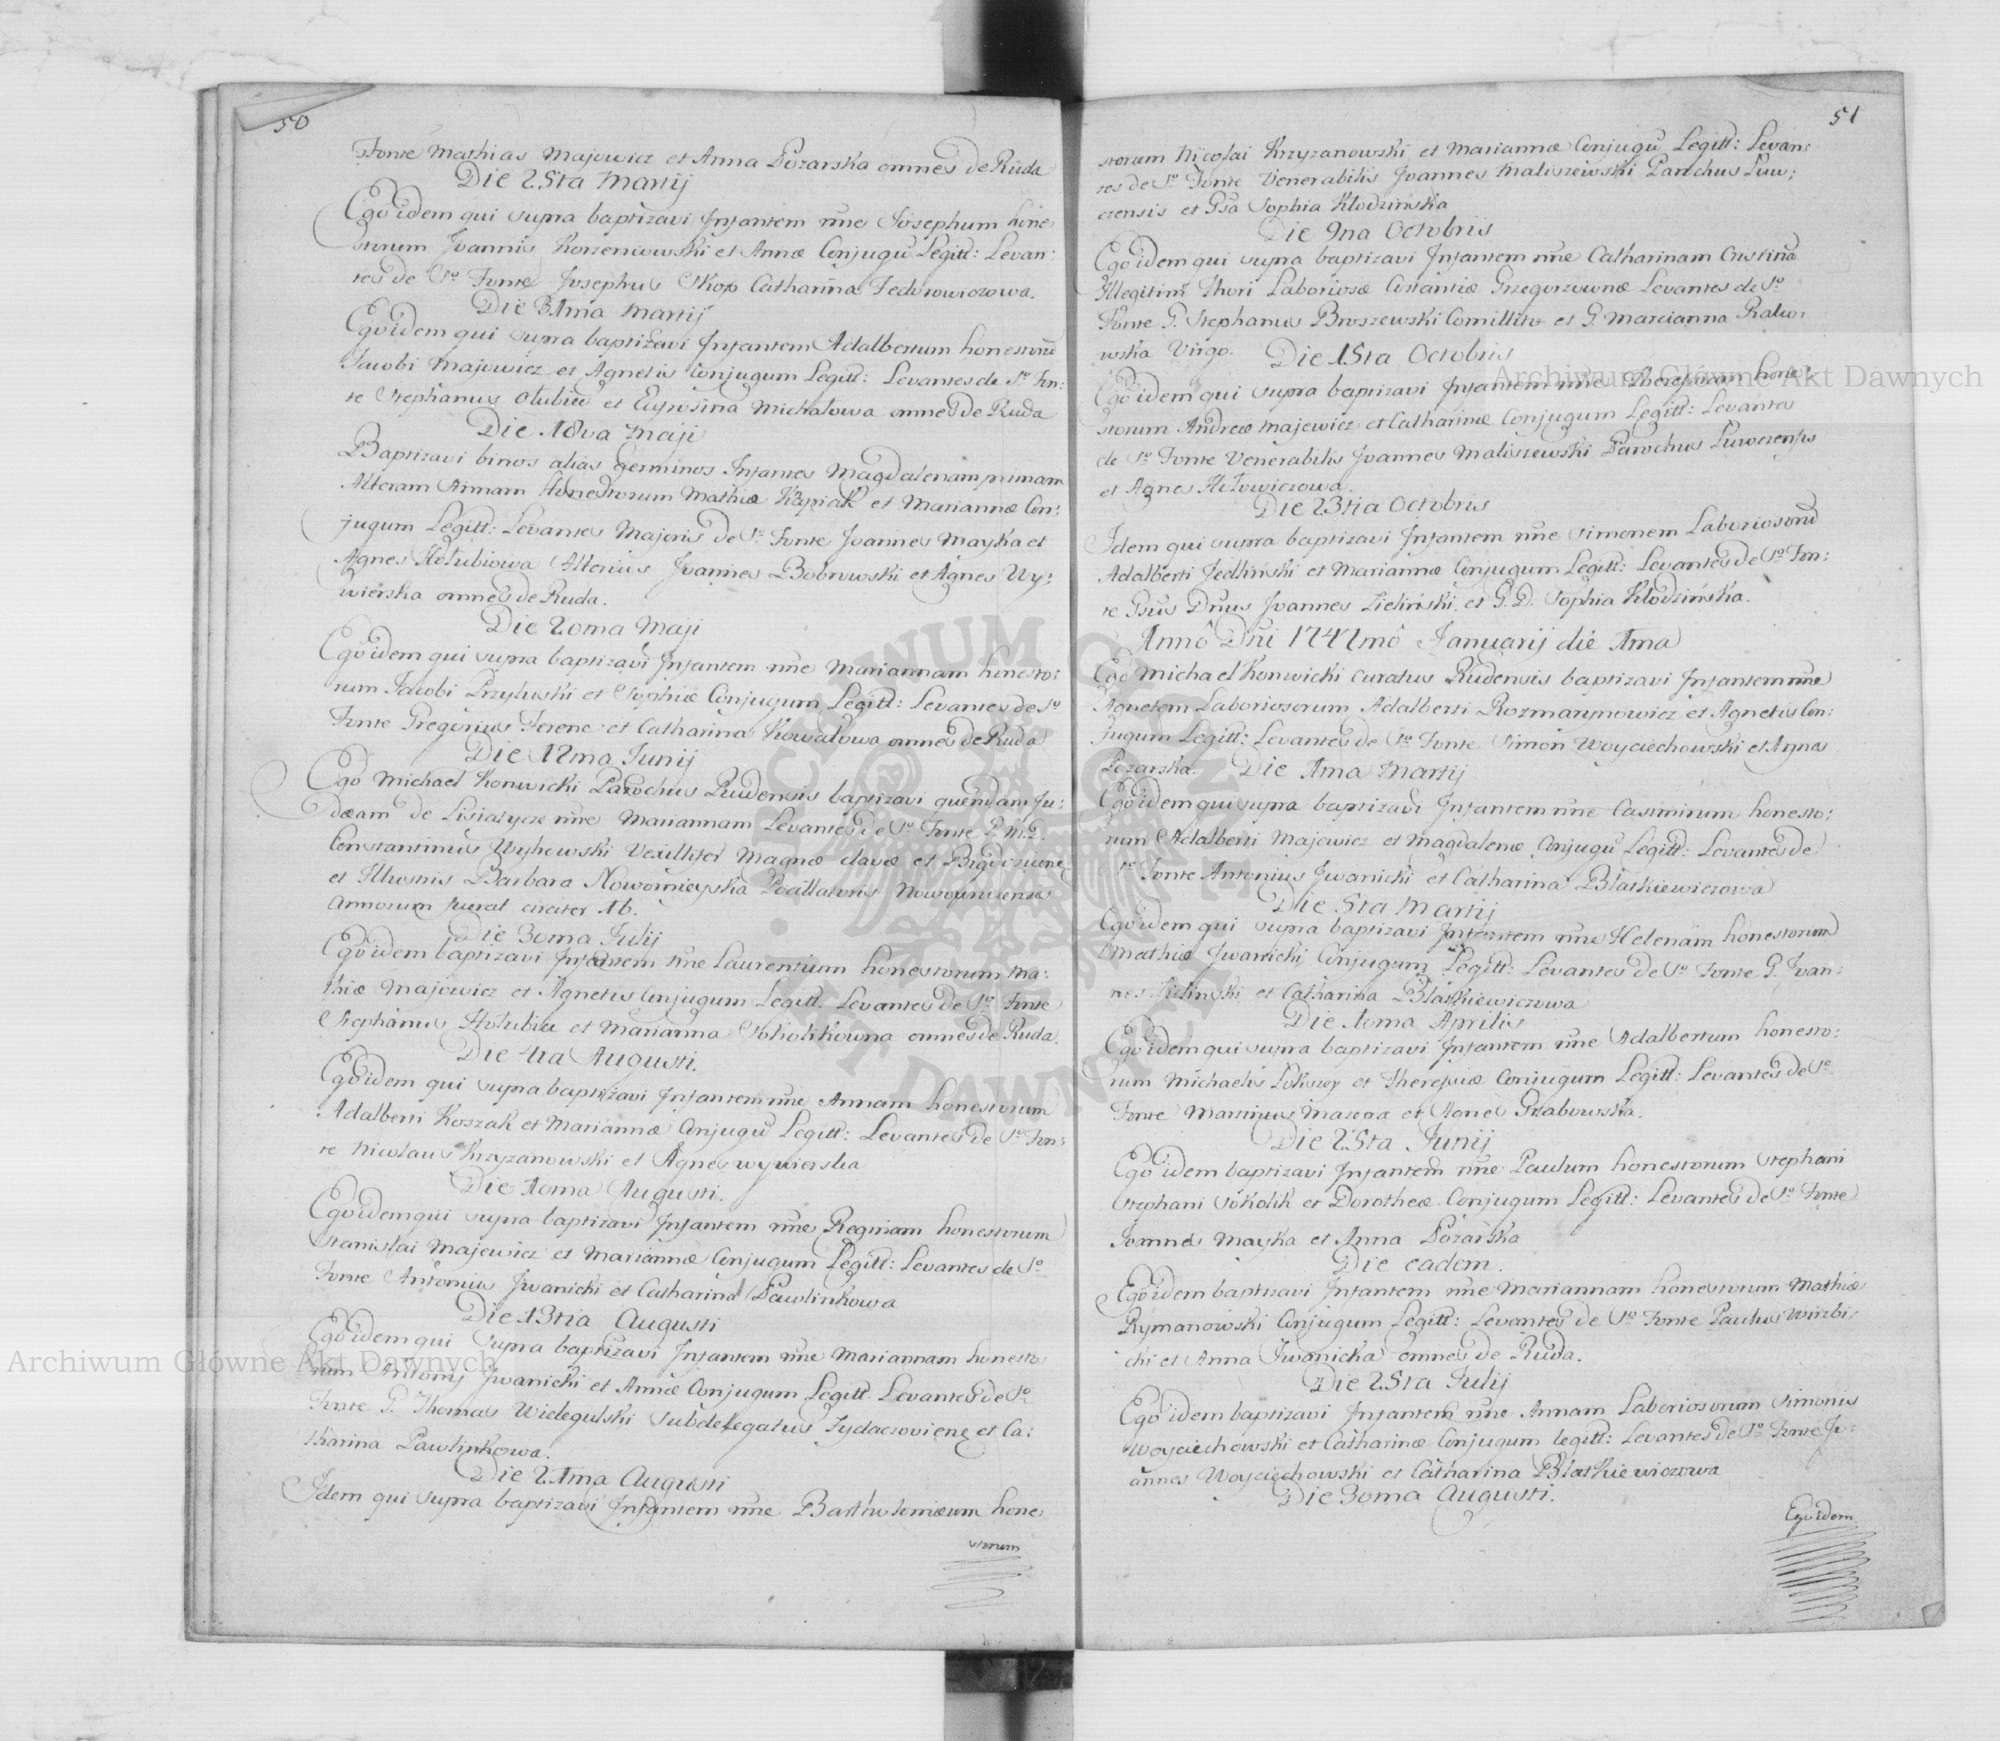 50
Fonte Mathias Majewicz et Anna Pozarska omnes de Ruda
Die 25ta Martij
Ego idem qui supra baptizavi Infantem nne Josephum hone:
storum Joannis Korzeniowski et Annæ Conjugũ Legitt: Levan:
tes de So Fonte Josephus Skop Catharina Fedorowiczowa.
Die 31ma Martij
Ego idem qui supra baptizavi Infantem Adalbertum honestorũ
Jacobi Majewicz et Agnetis Conjugum Legitt: Levantes de So Fon:
te Stephanus Olubiec et Eufrosina Michałowa omnes de Ruda
Die 18va Maji
Baptizavi binos alias Geminos Infantes Magdalenam primam
Alteram Annam Honestorum Mathiæ Kapiak et Mariannæ Con:
jugum Legitt: Levantes Majoris de So Fonte Joannes Mayka et
Agnes Hołubiowa Alterius Joannes Bobrowski et Agnes Wy:
wierska omnes de Ruda.
Die 20ma Maji
Ego idem qui supra baptizavi Infantem nne Mariannam honesto:
rum Jacobi Przyłuski et Sophiæ Conjugum Legitt: Levantes de So
Fonte Gregorius Ferenc et Catharina Kowalowa omnes de Ruda
Die 12ma Junij
Ego Michael Konwicki Parochus Rudensis baptizavi quendam Ju:
dæam de Lisiatycze nne Mariannam Levantes de So Fonte P. M. D.
Constantinus Wyhowski Vexillifer Magnæ clavæ et
et Illustris Barbara
Annorum fuerat circiter 16.
Die 30ma Julij
Ego idem baptizavi Infantem nne Laurentium honestorum Ma:
thiæ Majewicz et Agnetis Conjugum Legitt. Levantes de So Fonte
Stephanus Hołubiec et Marianna Sokolikowna omnes de Ruda.
Die 4ta Augusti.
Ego idem qui supra baptizavi Infantem nne Annam honestorum
Adalberti Koszak et Mariannæ Conjugũ Legitt: Levantes de So Fon:
te Nicolaus Krzyzanowski et Agnes wywierska
Die 10ma Augusti.
Ego idem qui supra baptizavi Infantem nne Reginam honestorum
Stanislai Majewicz et Mariannæ Conjugum Legitt: Levantes de So
Fonte Antonius Jwanicki et Catharina Pawlinkowa
Die 13tia Augusti
Ego idem qui supra baptizavi Infantem nne Mariannam honesto
rum Antonij Jwanicki et Annæ Conjugum Legitt. Levantes de So
Fonte G. Thomas Wielegulski Subdelegatus Zydaczoviens et Ca:
tharina Pawlinkowa.
Die 21ma Augusti
Idem qui supra baptizavi Infantem nne Bartholomæum hone:
storum
51
storum Nicolai Krzyzanowski et Mariannæ Conjugũ Legitt: Levan:
tes de So Fonte Venerabilis Joannes Maliszewski Parochus
et Gsa Sophia Kłodzinska
Die 1ma Octobris
Ego idem qui supra baptizavi Infantem nne Catharinam Cristinã
Illegitimi Thori Laboriosæ Constantiæ Grzegorzownæ Levantes de So
Fonte G. Stephanus Broszewski et G. Marcianna
Virgo. Die 15ta Octobris
Ego idem qui supra baptizavi Infantem nne Theresiam hone:
storum Andreæ Majewicz et Catharinæ Conjugum Legitt: Levantes
de So Fonte Venerabilis Joannes Maliszewski Parochus
et Agnes
Die 23tia Octobris
Idem qui supra baptizavi Infantem nne Simonem Laboriosorũ
Adalberti Jedlinski et Mariannæ Conjugum Legitt: Levantes de So Fon:
te Gsus Dnus Joannes Zielinski et G.D. Sophia Kłodzinska.
Annô Dni 1741mô Januarij die 1ma
Ego Michael Konwicki curatus Rudensis baptizavi Infantem nne
Agnetem Laboriosorum Adalberti Rozmarynowicz et Agnetis Con:
jugum Legitt: Levantes de So Fonte Simon Woyciechowski et Anna
Pozarska. Die 1ma Martij
Ego idem qui supra baptizavi Infantem nne Casimirum honesto:
rum Adalberti Majewicz et Magdalenæ Conjugũ Legitt: Levantes de
So Fonte Antonius Jwanicki et Catharina Błatkiewiczowa
Die 5ta Martij
Ego idem qui supra baptizavi Infantem nne Helenam honestorum
Mathiæ Jwanicki Conjugum Legitt: Levantes de So Fonte G. Joan:
nes Zielinski et Catharina Błatkiewiczowa
Die 10ma Aprilis
Ego idem qui supra baptizavi Infantem nne Adalbertum honesto:
rum Michaelis et Theresiæ Conjugum Legitt: Levantes de So
Fonte Martinus et Agnes Grabowska.
Die 25ta Junij
Ego idem baptizavi Infantem nne Paulum honestorum Stephani
Stephani Sokolik et Dorotheæ Conjugum Legitt: Levantes de So Fonte
Joannes Mayka et Anna Pozarska
Die eadem.
Ego idem baptizavi Infantem nne Mariannam honestorum Mathiæ
Rymanowski Conjugum Legitt: Levantes de So Fonte Paulus Wirzbi:
cki et Anna Jwanicka omnes de Ruda.
Die 25ta Julij
Ego idem baptizavi Infantem nne Annam Laboriosorum Simonis
Woyciechowski et Catharinæ Conjugum legitt: Levantes de So Fonte Jo:
annes Woyciechowski et Catharina Błatkiewiczowa
Die 30ma Augusti.
Ego idem
Archiwum Główne Akt Dawnych
Archiwum Główne Akt Dawnych
ARCHIWUM GŁÓWNE AKT DAWNYCH